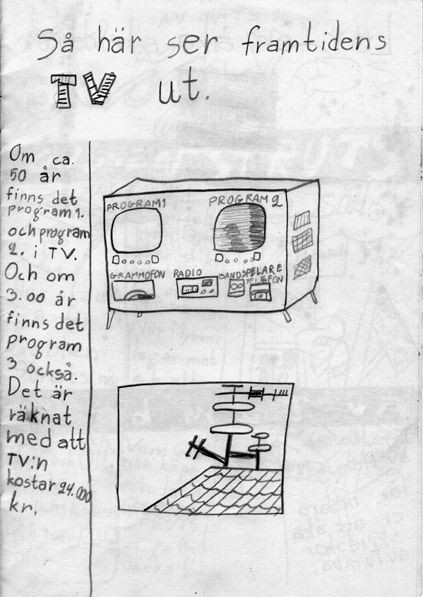 Så här ser framtidens
TV ut.
Om ca.
50 år
finns det
program 1.
och program
2. i TV.
Och om
3.00 år
finns det
program
3 också.
Det är
räknat
med att
TV:n
kostar 24.000
kr.
PROGRAM 1
PROGRAM 2
GRAMMOFON
RADIO
BANDSPELARE